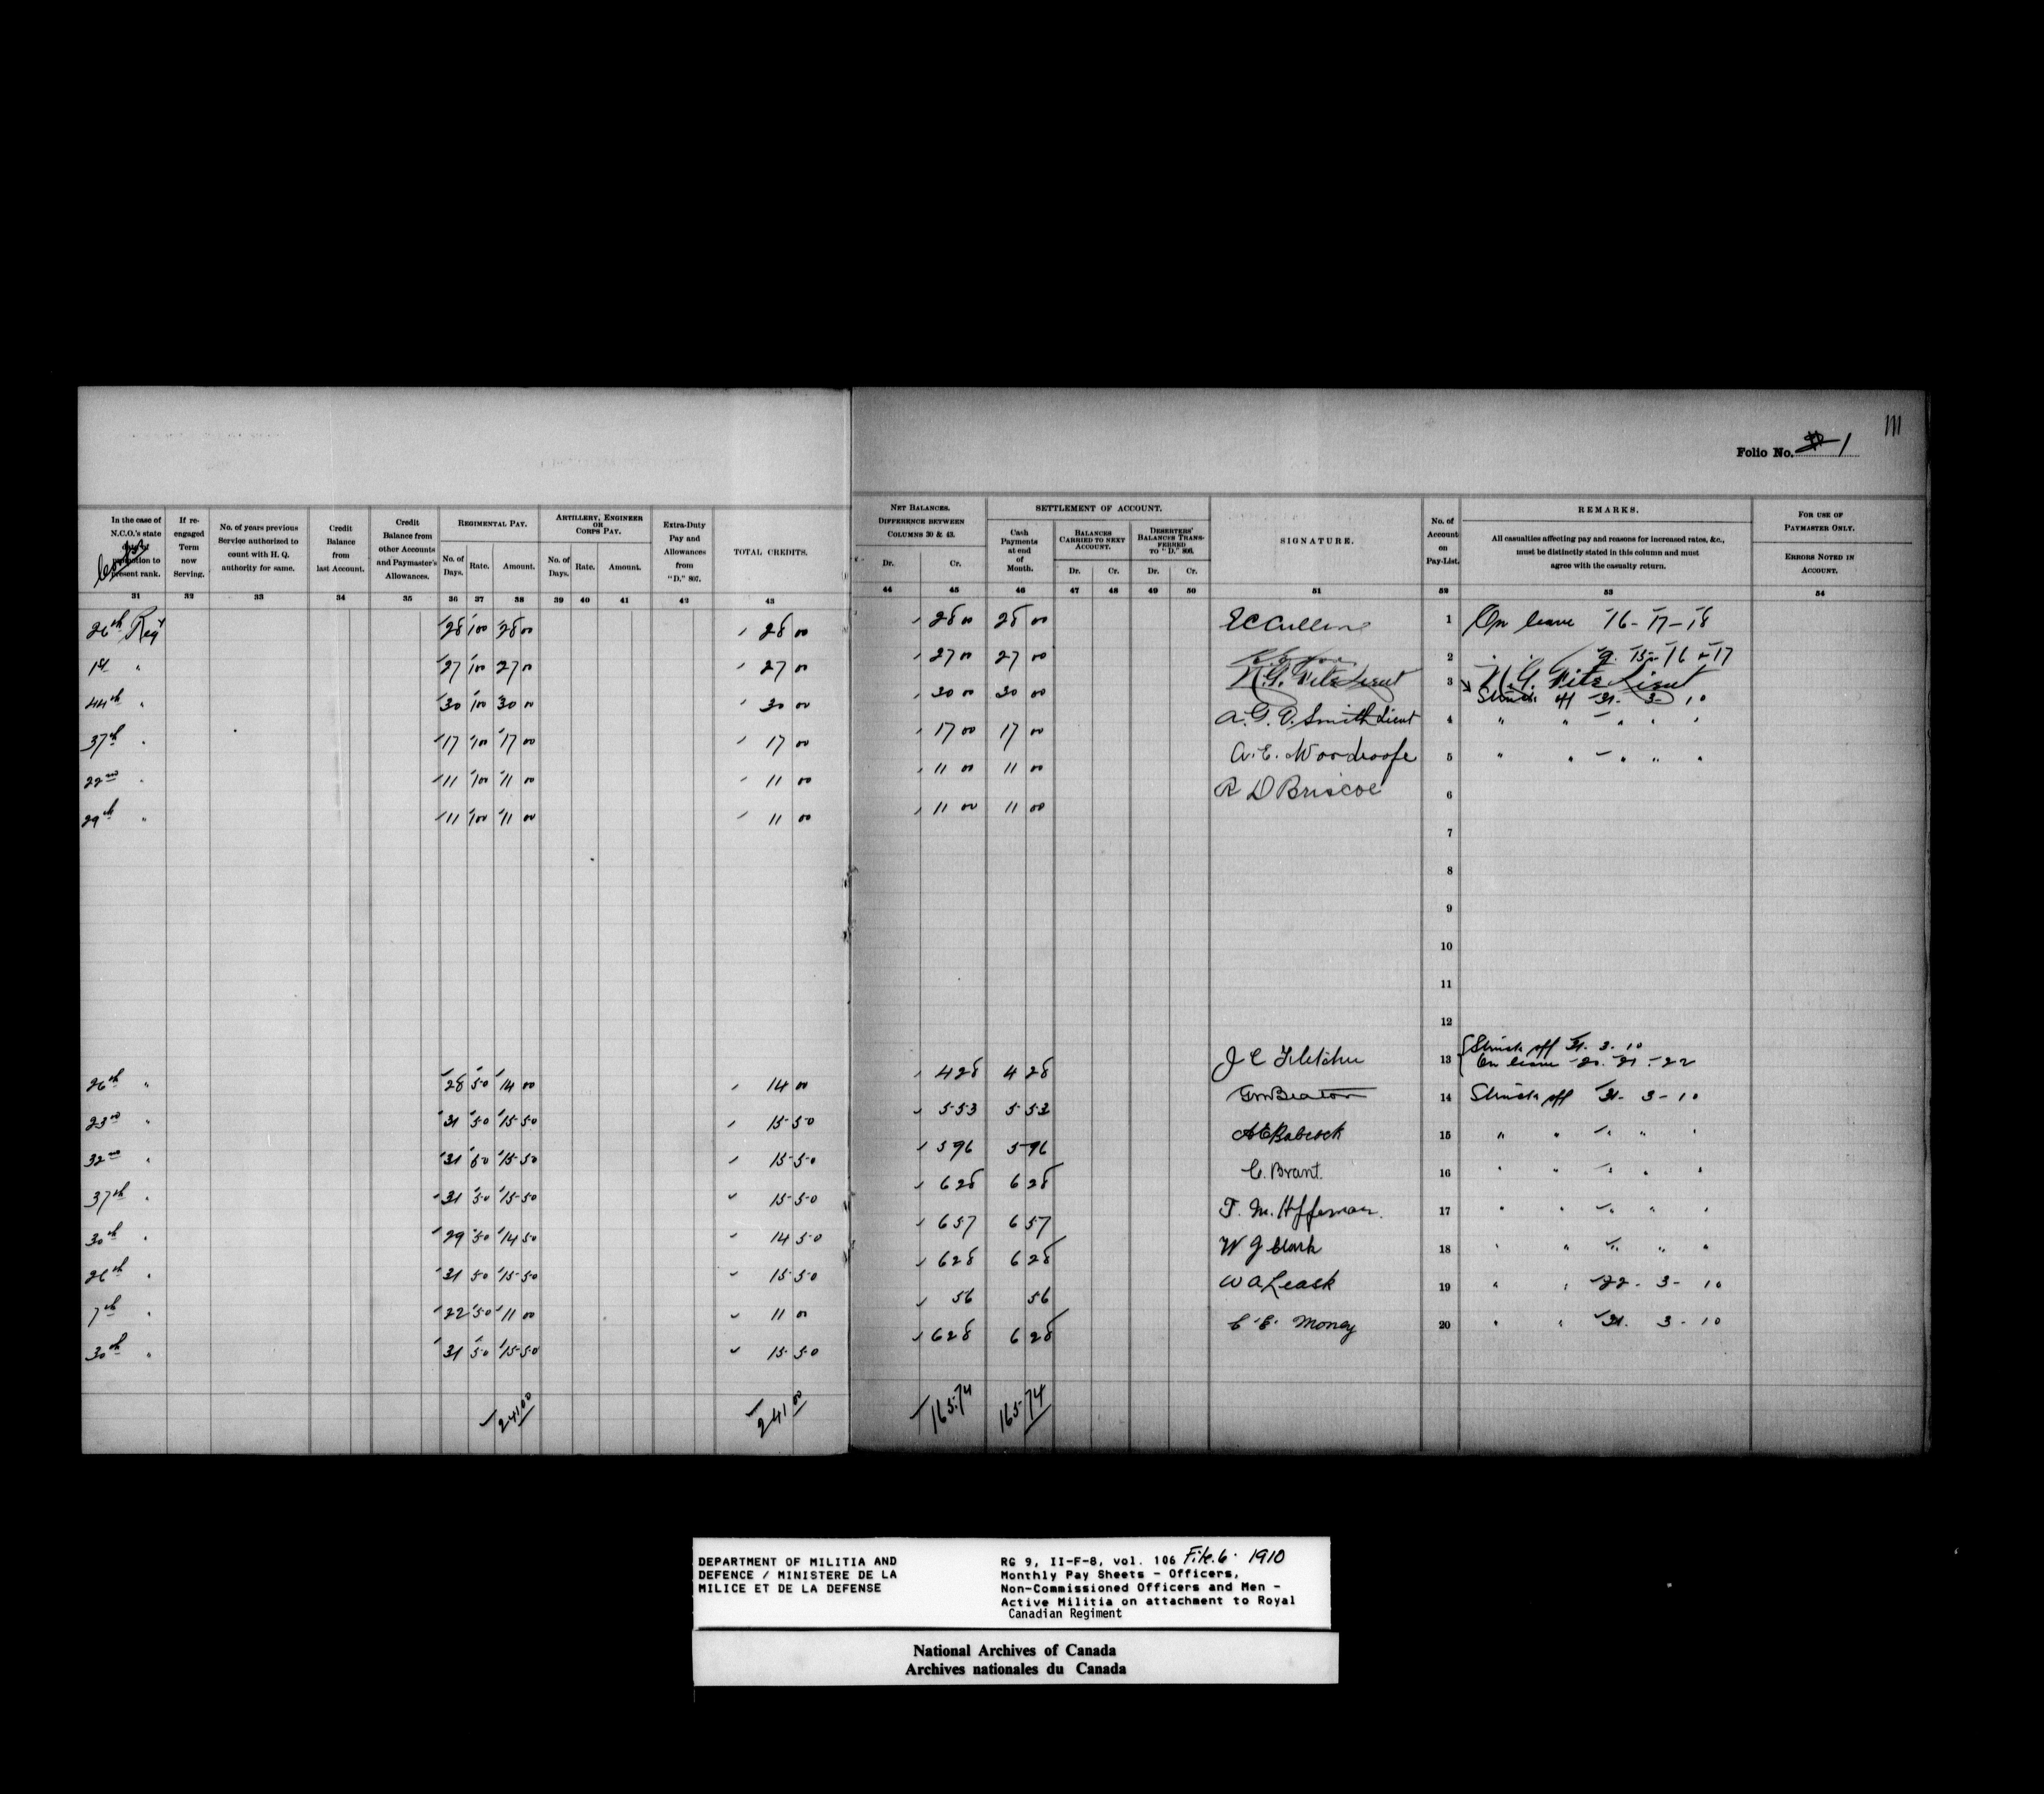 111
Folio No. 1
In the case of N.C.O.'s state date of promotion to present rank.
Corps
If re-engaged Term now Serving.
No. of years previous Service authorized to count with H. Q. authority for same.
Credit Balance from last Account.
Credit Balance from other Accounts and Paymaster's Allowances.
REGIMENTAL PAY.
No. of Days. Rate. Amount.
ARTILLERY, ENGINEER OR CORPS PAY.
No. of Days. Rate. Amount.
Extra-Duty Pay and Allowances from "D." 807.
TOTAL CREDITS.
NET BALANCES.
DIFFERENCE BETWEEN COLUMNS 30 & 43.
Dr. Cr.
SETTLEMENT OF ACCOUNT.
Cash Payments at end of Month.
BALANCES CARRIED TO NEXT ACCOUNT.
Dr. Cr.
DESERTERS' BALANCES TRANSFERRED TO "D." 806.
Dr. Cr.
SIGNATURE.
No. of Account on Pay-List.
REMARKS.
All casualties affecting pay and reasons for increased rates, &c., must be distinctly stated in this column and must agree with the casualty return.
FOR USE OF PAYMASTER ONLY.
ERRORS NOTED IN ACCOUNT.
31 32 33 34 35 36 37 38 39 40 41 42 43 44 45 46 47 48 49 50 51 52 53 54
26th Regt 28 100 28 00 28 00 28 00 28 00 1 On leave 16-17-18
1st " 27 100 27 00 27 00 27 00 27 00 2 " " 9. 15-16-17
44th " 30 100 30 00 30 00 30 00 30 00 N.G. Lieut 3 N.G. Lieut Struck off 31. 3- 10
37th " 17 100 17 00 17 00 17 00 17 00 A.G.D. Smith Lieut 4 " " " " "
22nd " 11 100 11 00 11 00 11 00 11 00 A.E. Woodroofe 5 " " " " "
29th " 11 100 11 00 11 00 11 00 11 00 R D Briscoe 6
7
8
9
10
11
12
26th " 28 50 14 00 14 00 4 28 4 28 J C Fletcher 13 Struck off 31. 3. 10
On leave 20. 21. 22
23rd " 31 50 15 50 15 50 5 53 5 53 GM Beaton 14 Struck off 31- 3-10
32nd " 31 50 15 50 15 50 5 96 5 96 AE Babcock 15 " " " " "
37th " 31 50 15 50 15 50 6 28 6 28 C. Brant. 16 " " " " "
30th " 29 50 14 50 14 50 6 57 6 57 T. M. Heffernan. 17 " " " " "
26th " 31 50 15 50 15 50 6 28 6 28 W J Clark 18 " " " " "
7th " 22 50 11 00 11 00 56 56 W A Leask 19 " " 22- 3- 10
30th " 31 50 15 50 15 50 6 28 6 28 C. E. Money 20 " " 31. 3-10
241.00 241 00 165.74 165 74
DEPARTMENT OF MILITIA AND
DEFENCE / MINISTERE DE LA
MILICE ET DE LA DEFENSE
RG 9, II-F-8, vol. 106 File.6. 1910
Monthly Pay Sheets - Officers,
Non-Commissioned Officers and Men -
Active Militia on attachment to Royal
Canadian Regiment
National Archives of Canada
Archives nationales du Canada